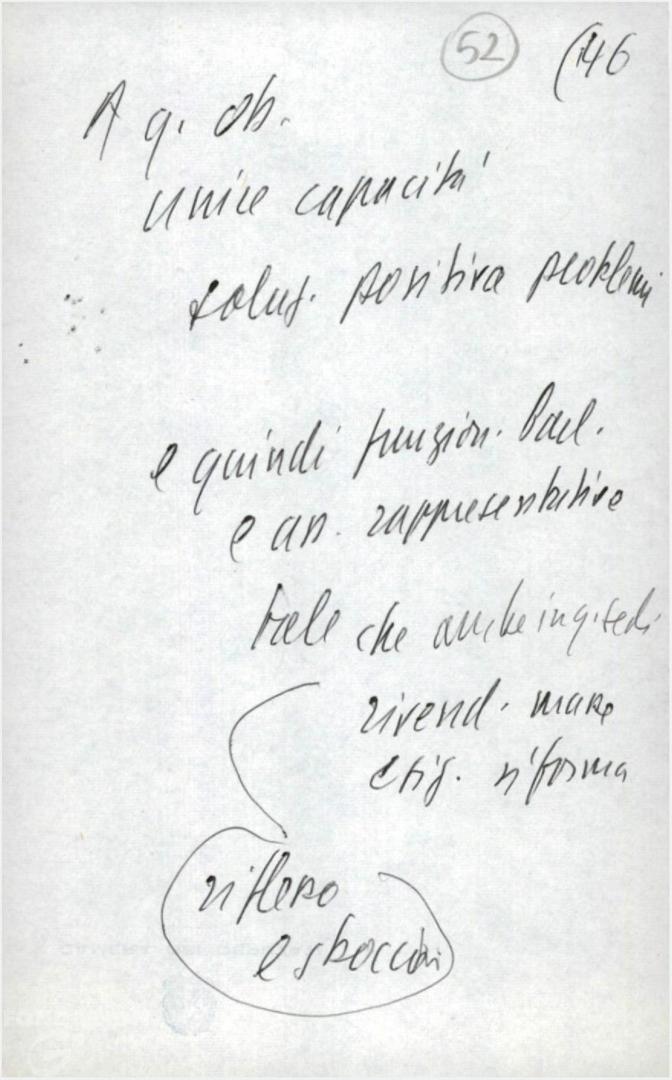 52 (146
A q. ob.
unice capacità
soluz. positiva problemi
e quindi funzion. Parl.
e an. rappresentative
tale che anche in q. sedi
rivend. mare
esig. riforma
riflesso
e sbocchi